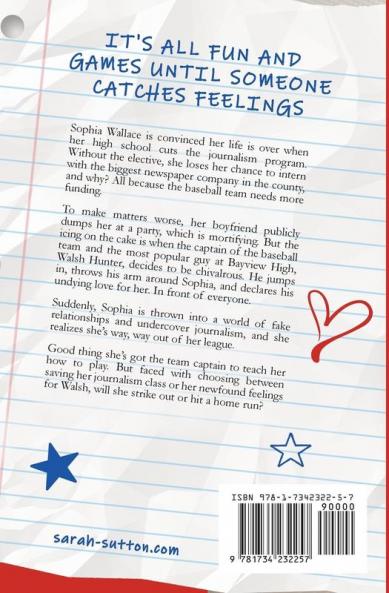 IT'S ALL FUN AND
GAMES UNTIL SOMEONE
CATCHES FEELINGS
Sophia Wallace is convinced her life is over when
her high school cuts the journalism program.
Without the elective, she loses her chance to intern
with the biggest newspaper company in the county,
and why? All because the baseball team needs more
funding.
To make matters worse, her boyfriend publicly
dumps her at a party, which is mortifying. But the
icing on the cake is when the captain of the baseball
team and the most popular guy at Bayview High,
Walsh Hunter, decides to be chivalrous. He jumps
in, throws his arm around Sophia, and declares his
undying love for her. In front of everyone.
Suddenly, Sophia is thrown into a world of fake
relationships and undercover journalism, and she
realizes she's way, way out of her league.
Good thing she's got the team captain to teach her
how to play. But faced with choosing between
saving her journalism class or her newfound feelings
for Walsh, will she strike out or hit a home run?
sarah-sutton.com
ISBN 978-1-7342322-5-7
90000
9 781734 232257